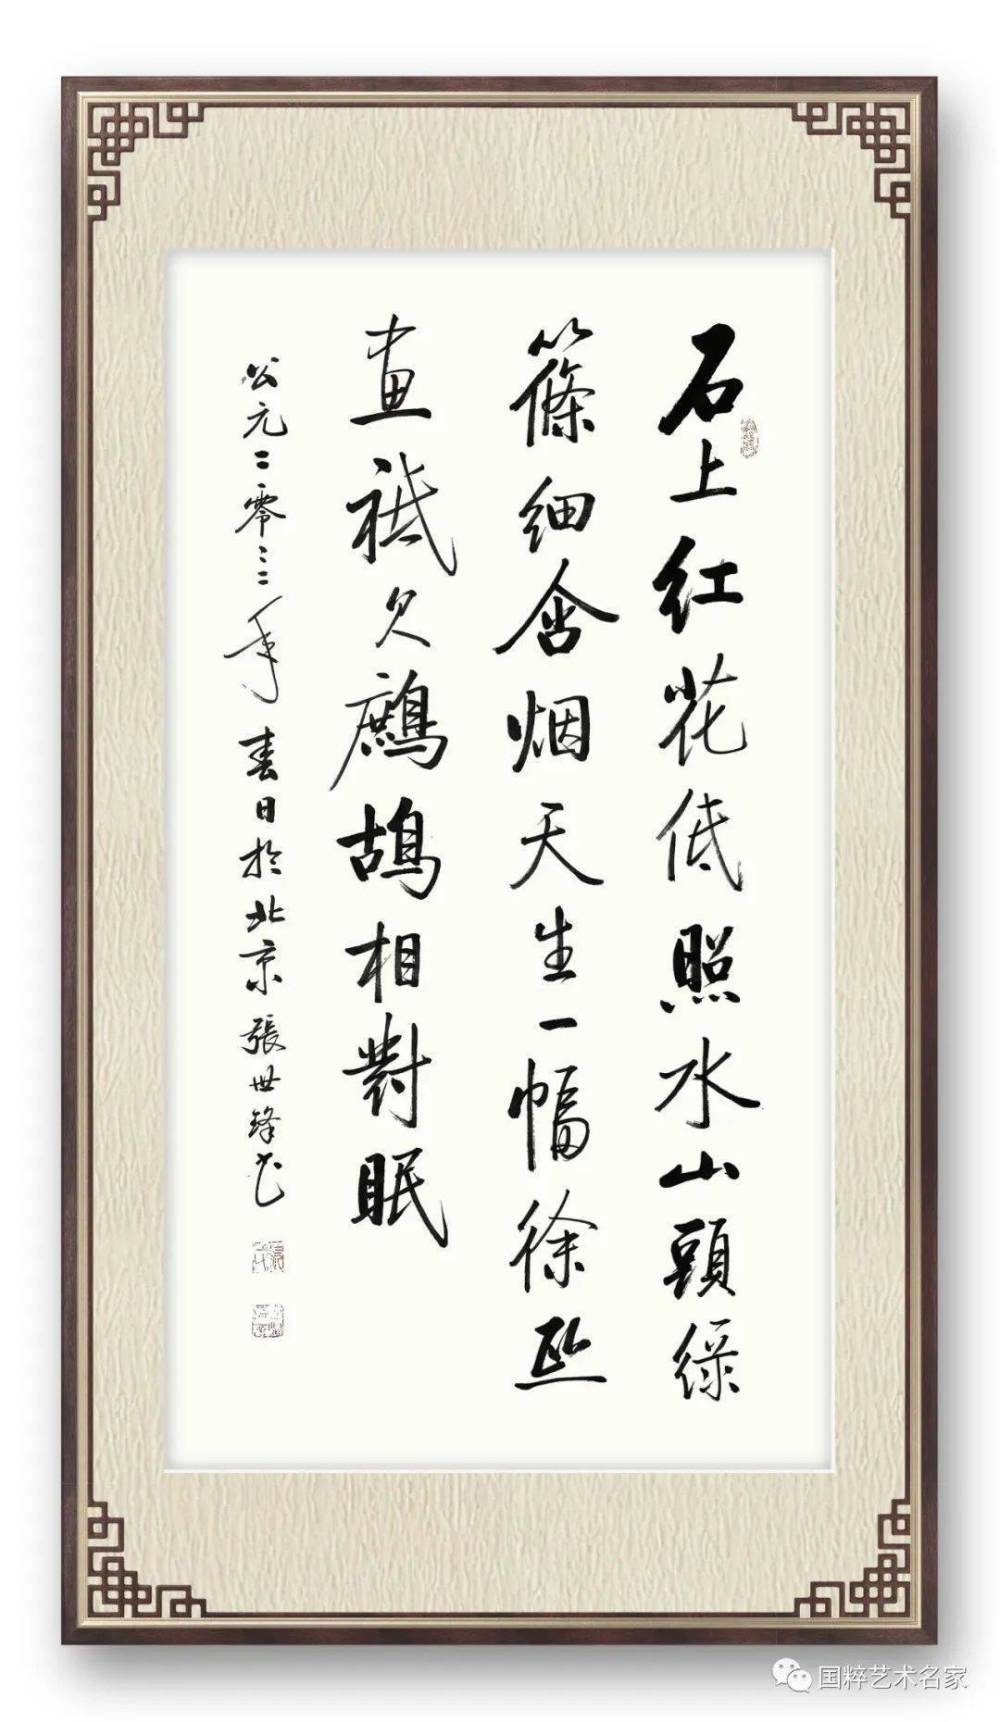 石上红花低照水山頭綠
篠细含烟天生一幅徐熙
畫祗欠鷓鴣相對眠
公元二零二三年春日於北京張世鋒书
国粹艺术名家